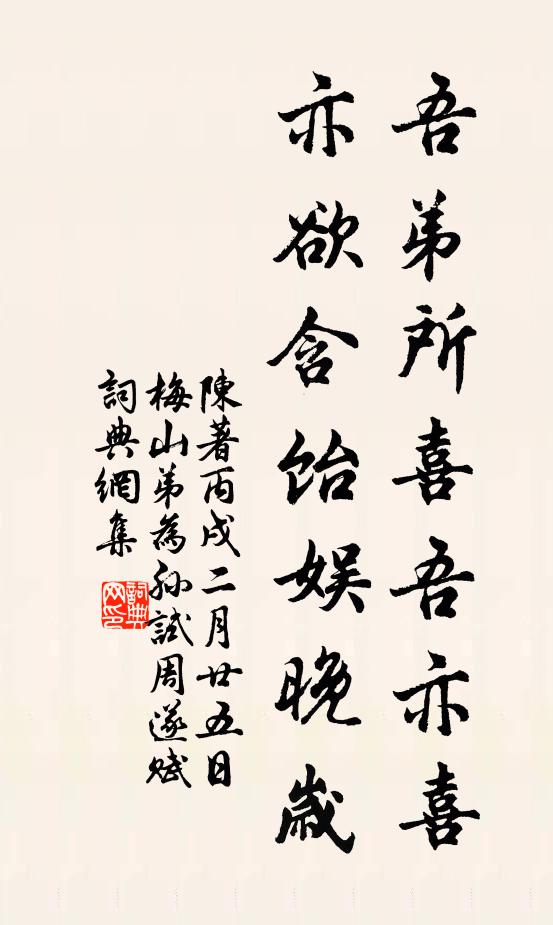 吾弟所喜吾亦喜
亦欲含飴娛晚歲
陳著丙戌二月廿五日
梅山弟為孫試周遂賦
詞典網集
詞典网印